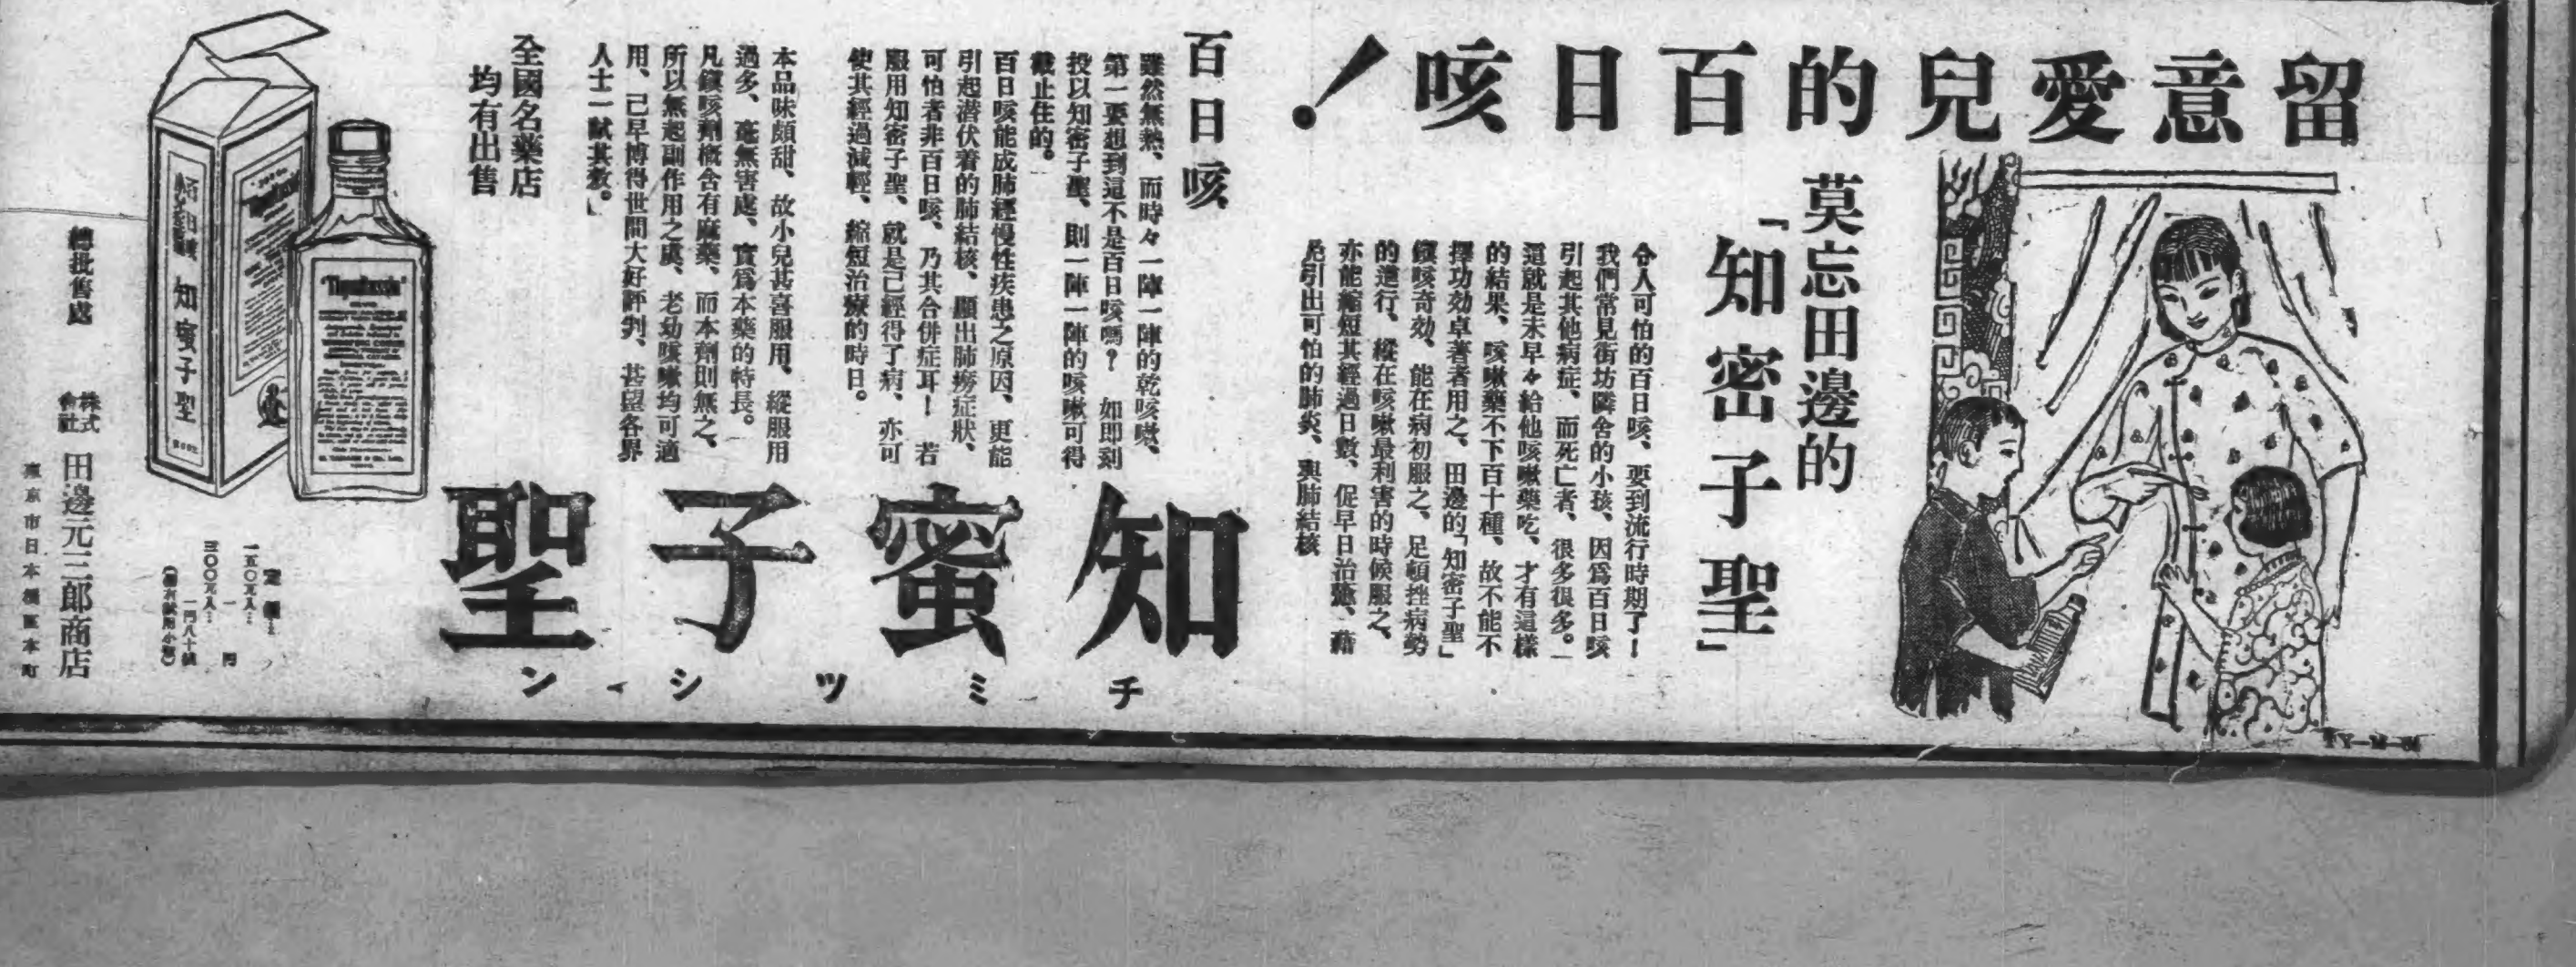 留意愛兒的百日咳！
莫忘田邊的
「知密子聖」
令人可怕的百日咳、要到流行時期了！
我們常見街坊隣舍的小孩、因爲百日咳
引起其他病症、而死亡者、很多很多。
這就是未早々給他咳嗽藥吃、才有這樣
的結果、咳嗽藥不下百十種、故不能不
擇功効卓著者用之、田邊的「知密子聖」
鎭咳奇効、能在病初服之、足頓挫病勢
的進行、縱在咳嗽最利害的時候服之、
亦能縮短其經過日數、促早日治癒、藉
免引出可怕的肺炎、與肺結核
百日咳
雖然無熱、而時々一陣一陣的乾咳嗽、
第一要想到這不是百日咳嗎？ 如即刻
投以知密子聖、則一陣一陣的咳嗽可得
截止住的。
百日咳能成肺經慢性疾患之原因、更能
引起潜伏着的肺結核、顯出肺癆症狀、
可怕者非百日咳、乃其合併症耳！ 若
服用知密子聖、就是已經得了病、亦可
使其經過減輕、縮短治療的時日。
本品味頗甜、故小兒甚喜服用、縱服用
過多、毫無害處、實爲本藥的特長。
凡鎭咳劑槪含有麻藥、而本劑則無之、
所以無起副作用之虞、老幼咳嗽均可適
用、已早博得世間大好評判、甚望各界
人士一試其效。」
知蜜子聖
チミツシン
全國名藥店
均有出售
知蜜子聖
定價
一五〇瓦入… 一円
三〇〇瓦入… 一円八十錢
總批售處
株式會社 田邊元三郎商店
東京市日本橋區本町